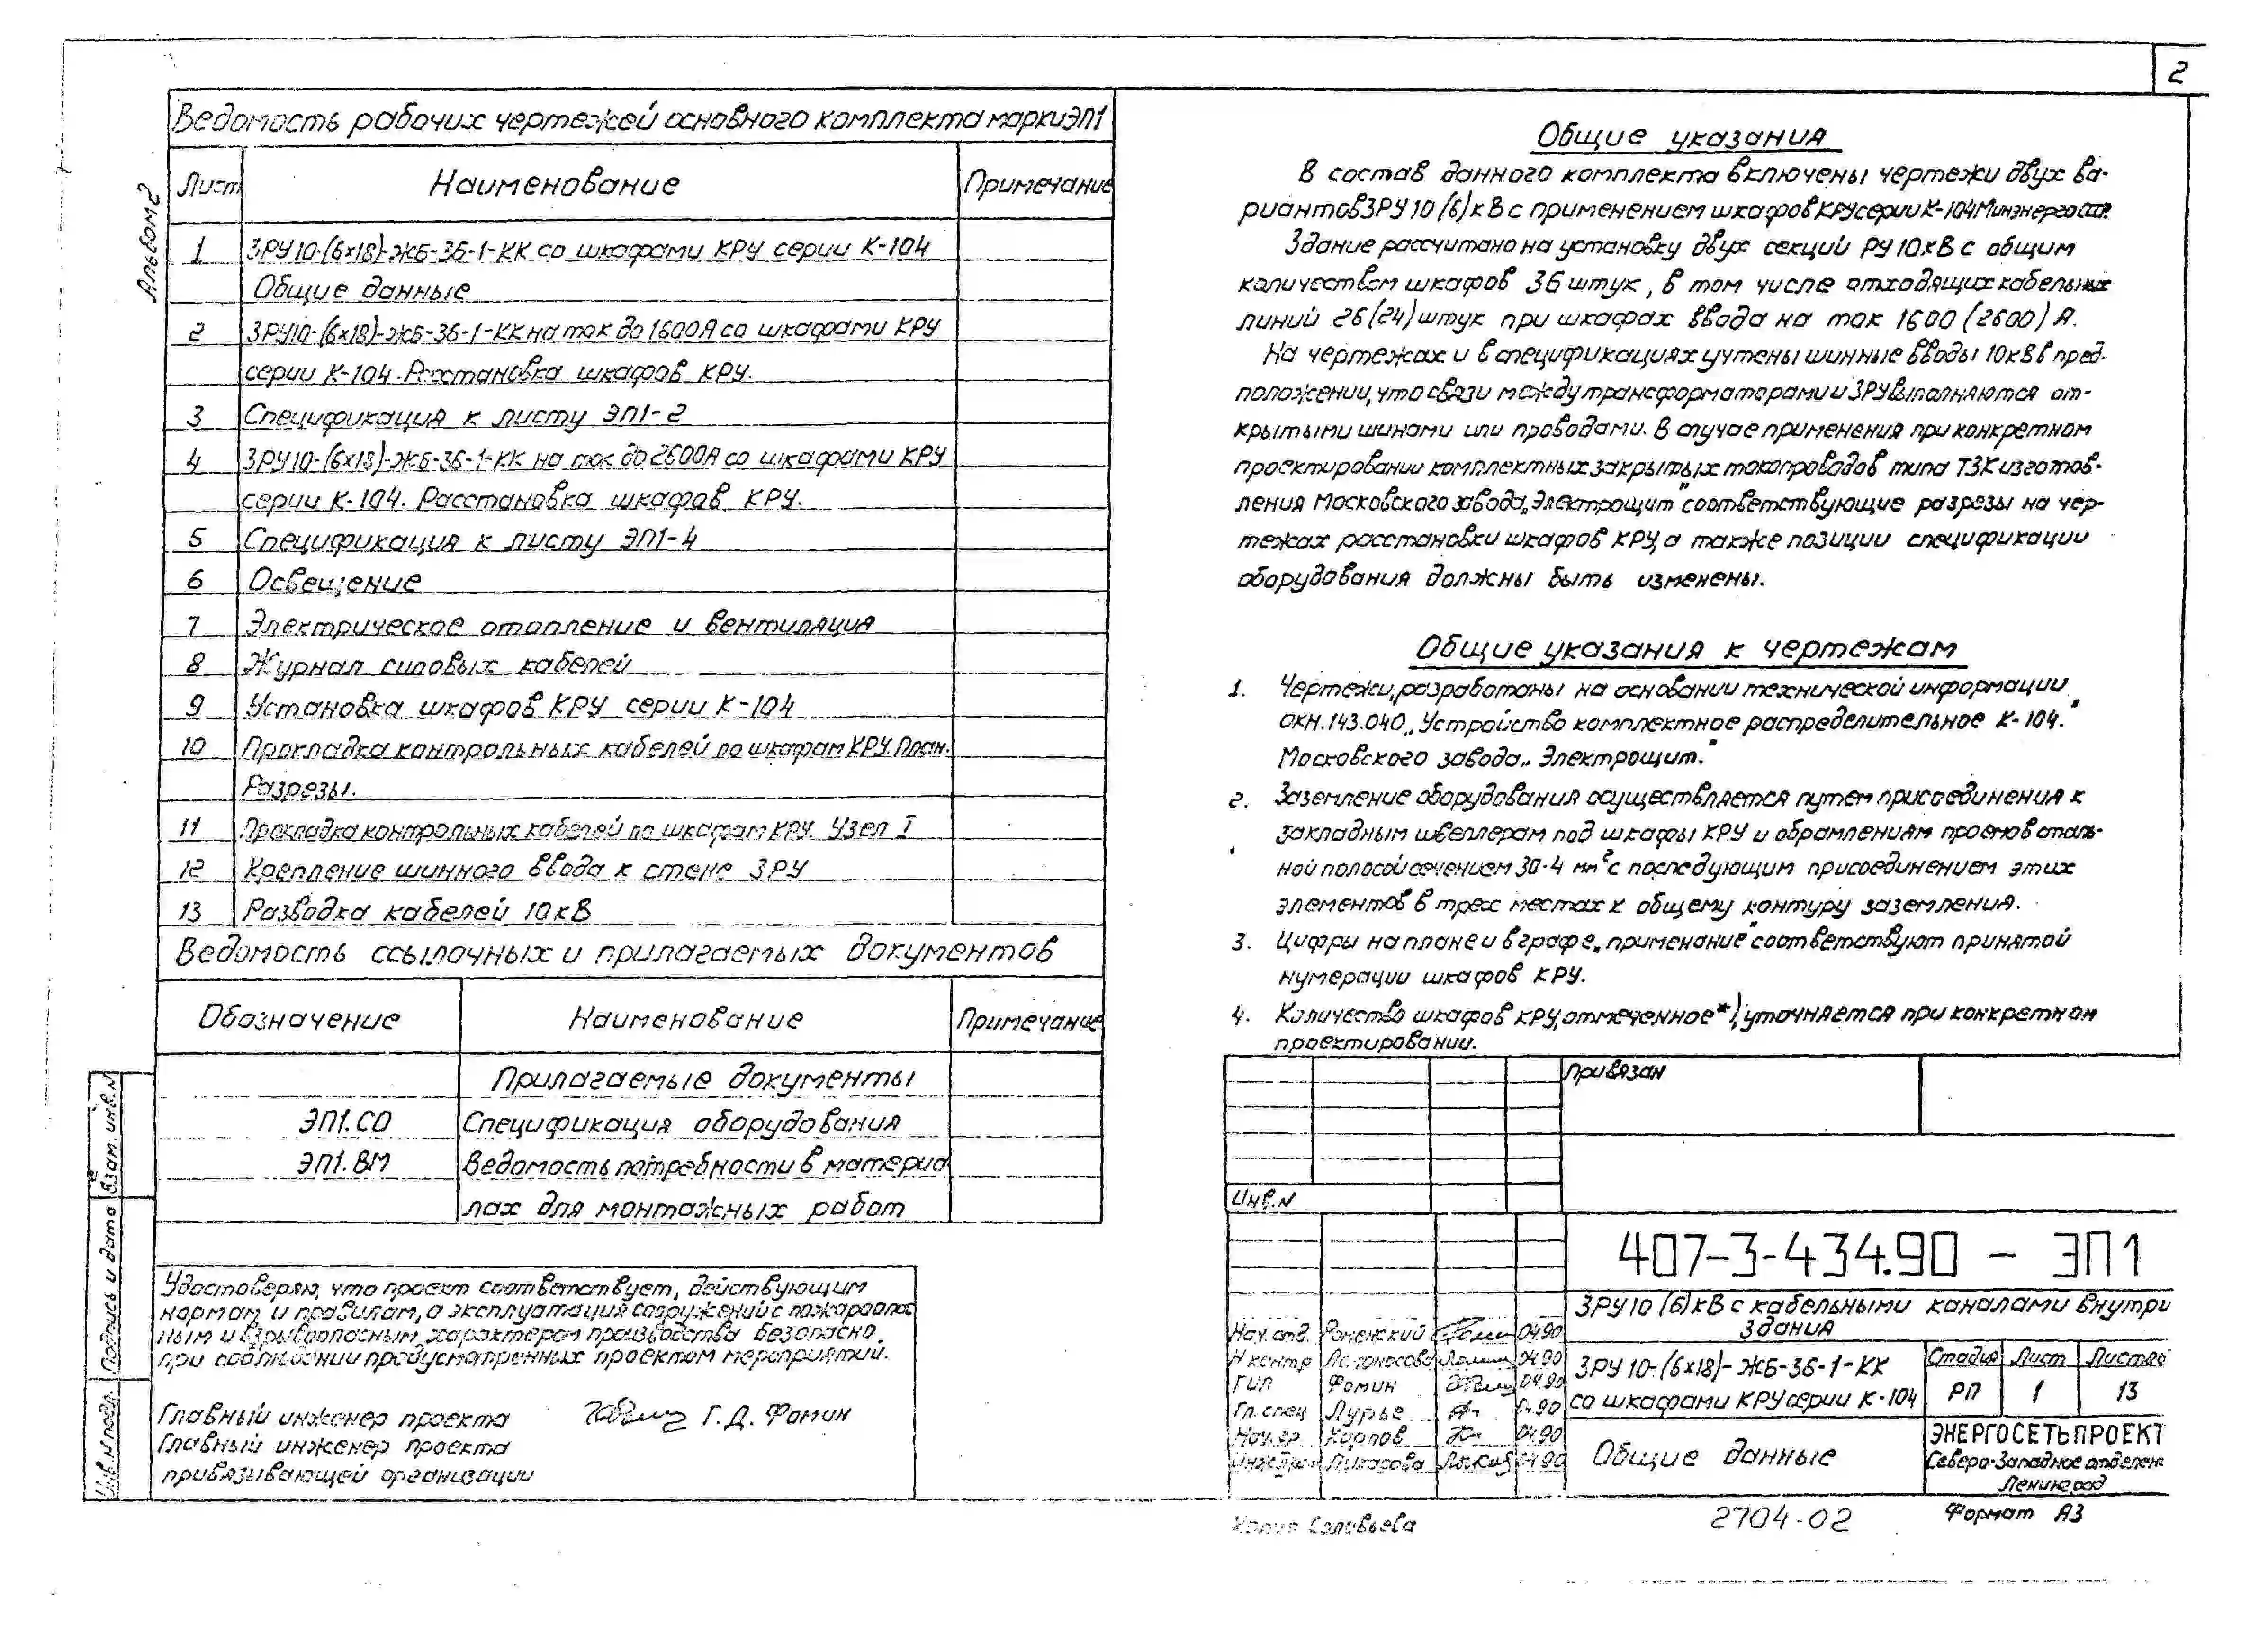 2
Альбом 2
Ведомость рабочих чертежей основного комплекта марки ЭП1
Лист Наименование Примечание
1 ЗРУ10-(6х18)-ЖБ-36-1-КК со шкафами КРУ серии К-104
Общие данные
2 ЗРУ10-(6х18)-ЖБ-36-1-КК на ток до 1600А со шкафами КРУ
серии К-104. Расстановка шкафов КРУ.
3 Спецификация к листу ЭП1-2
4 ЗРУ10-(6х18)-ЖБ-36-1-КК на ток до 2600А со шкафами КРУ
серии К-104. Расстановка шкафов КРУ.
5 Спецификация к листу ЭП1-4
6 Освещение
7 Электрическое отопление и вентиляция
8 Журнал силовых кабелей
9 Установка шкафов КРУ серии К-104
10 Прокладка контрольных кабелей по шкафам КРУ. План.
Разрезы.
11 Прокладка контрольных кабелей по шкафам КРУ. Узел I
12 Крепление шинного ввода к стене ЗРУ
13 Разводка кабелей 10кВ
Ведомость ссылочных и прилагаемых документов
Обозначение Наименование Примечание
Прилагаемые документы
ЭП1.СО Спецификация оборудования
ЭП1.ВМ Ведомость потребности в материа
лах для монтажных работ
Удостоверяю, что проект соответствует, действующим
нормам и правилам, а эксплуатация сооружений с пожароопас
ным и взрывоопасным характером производства безопасно,
при соблюдении предусмотренных проектом мероприятий.
Главный инженер проекта Г.Д. Фомин
Главный инженер проекта
привязывающей организации
Взам. инв. N
Подпись и дата
Инв. N подл.
Общие указания
В состав данного комплекта включены чертежи двух ва-
риантов ЗРУ 10 (6) кВ с применением шкафов КРУ серии К-104 Минэнерго СССР.
Здание рассчитано на установку двух секций РУ 10кВ с общим
количеством шкафов 36 штук, в том числе отходящих кабельных
линий 26 (24) штук при шкафах ввода на ток 1600 (2600) А.
На чертежах и в спецификациях учтены шинные вводы 10кВ в пред-
положении, что связи между трансформаторами и ЗРУ выполняются от-
крытыми шинами или проводами. В случае применения при конкретном
проектировании комплектных закрытых токопроводов типа ТЗК изготов-
ления Московского завода „Электрощит" соответствующие разрезы на чер-
тежах расстановки шкафов КРУ, а также позиции спецификации
оборудования должны быть изменены.
Общие указания к чертежам
1. Чертежи, разработаны на основании технической информации
ОКН.143.040 „Устройство комплектное распределительное К-104."
Московского завода „Электрощит."
2. Заземление оборудования осуществляется путем присоединения к
закладным швеллерам под шкафы КРУ и обрамлениям проемов сталь-
ной полосой сечением 30·4 мм² с последующим присоединением этих
элементов в трех местах к общему контуру заземления.
3. Цифры на плане и в графе „примечание" соответствуют принятой
нумерации шкафов КРУ.
4. Количество шкафов КРУ, отмеченное *), уточняется при конкретном
проектировании.
Привязан
Инв. N
407-3-434.90 - ЭП1
ЗРУ 10 (6) кВ с кабельными каналами внутри
здания
Нач. отд. Роменский 04.90
Н контр Ломоносова 04.90
ГИП Фомин 04.90
Гл. спец Лурье 04.90
Нач. гр. Карпов 04.90
04.90
ЗРУ 10-(6х18)-ЖБ-36-1-КК
со шкафами КРУ серии К-104
Стадия Лист Листов
РП 1 13
Общие данные
ЭНЕРГОСЕТЬПРОЕКТ
Северо-Западное отделен.
Ленинград
Копия Соловьева
2704-02
Формат А3